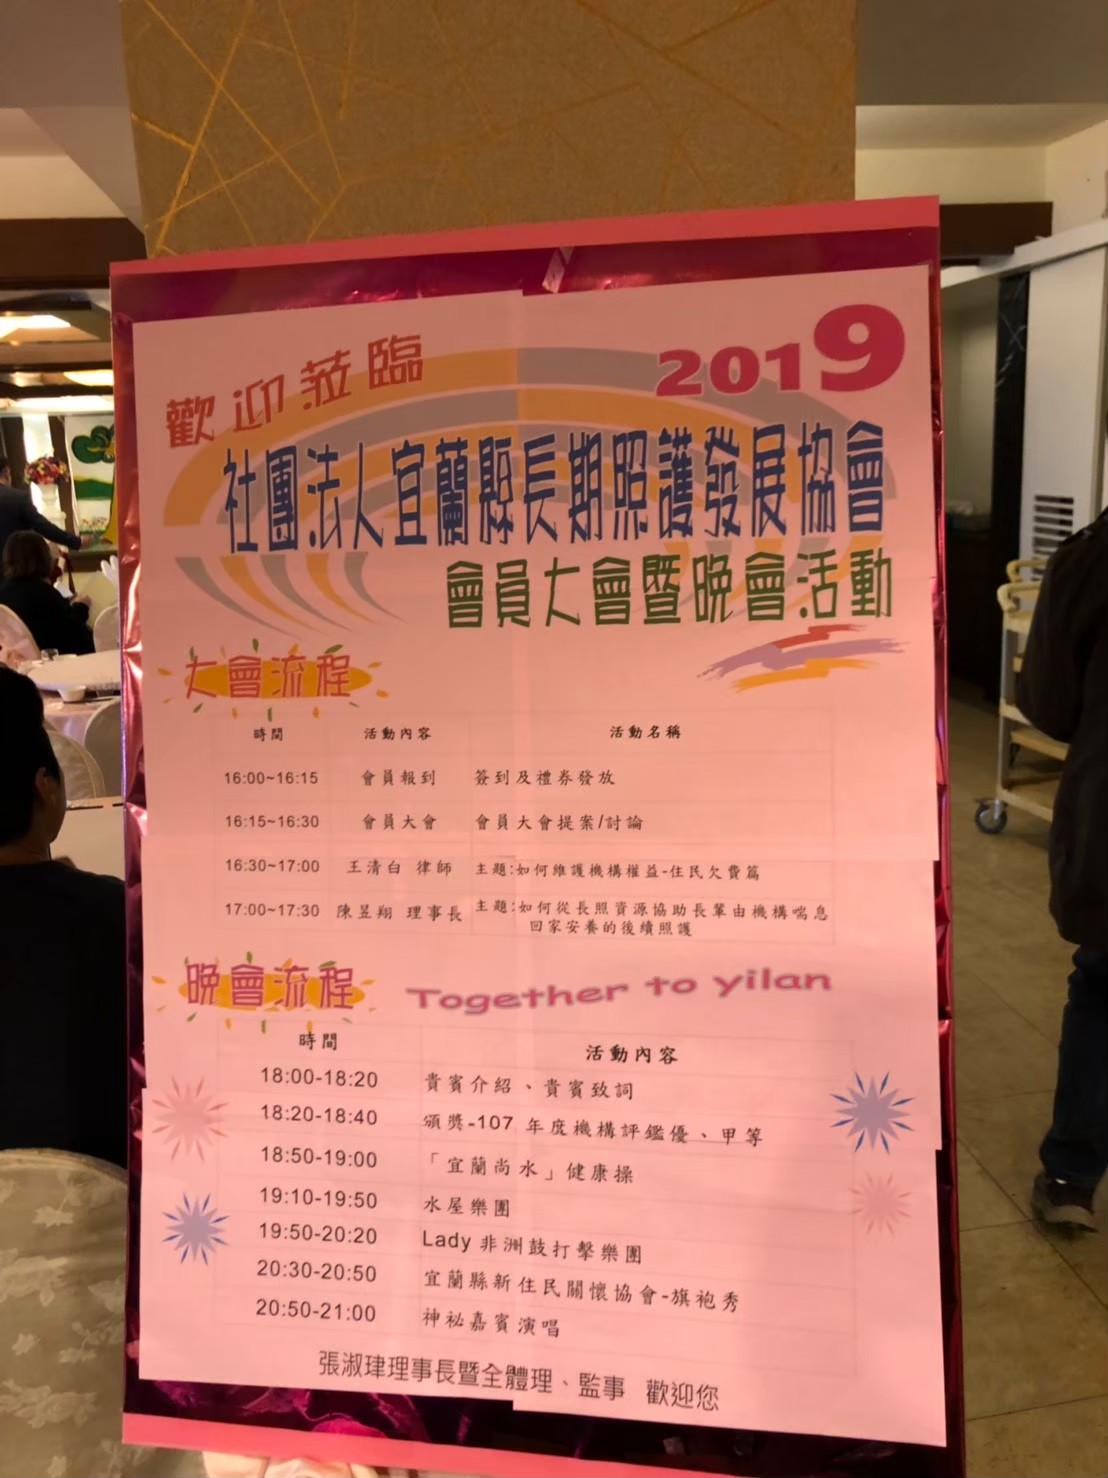 歡迎蒞臨
2019
社團法人宜蘭縣長期照護發展協會
會員大會暨晚會活動
大會流程
時間 活動內容 活動名稱
16:00~16:15 會員報到 簽到及禮券發放
16:15~16:30 會員大會 會員大會提案/討論
16:30~17:00 王清白 律師 主題:如何維護機構權益-住民欠費篇
17:00~17:30 陳昱翔 理事長 主題:如何從長照資源協助長輩由機構喘息
回家安養的後續照護
晚會流程 Together to yilan
時間 活動內容
18:00-18:20 貴賓介紹、貴賓致詞
18:20-18:40 頒獎-107 年度機構評鑑優、甲等
18:50-19:00 「宜蘭尚水」健康操
19:10-19:50 水屋樂團
19:50-20:20 Lady 非洲鼓打擊樂團
20:30-20:50 宜蘭縣新住民關懷協會-旗袍秀
20:50-21:00 神祕嘉賓演唱
張淑珒理事長暨全體理、監事 歡迎您